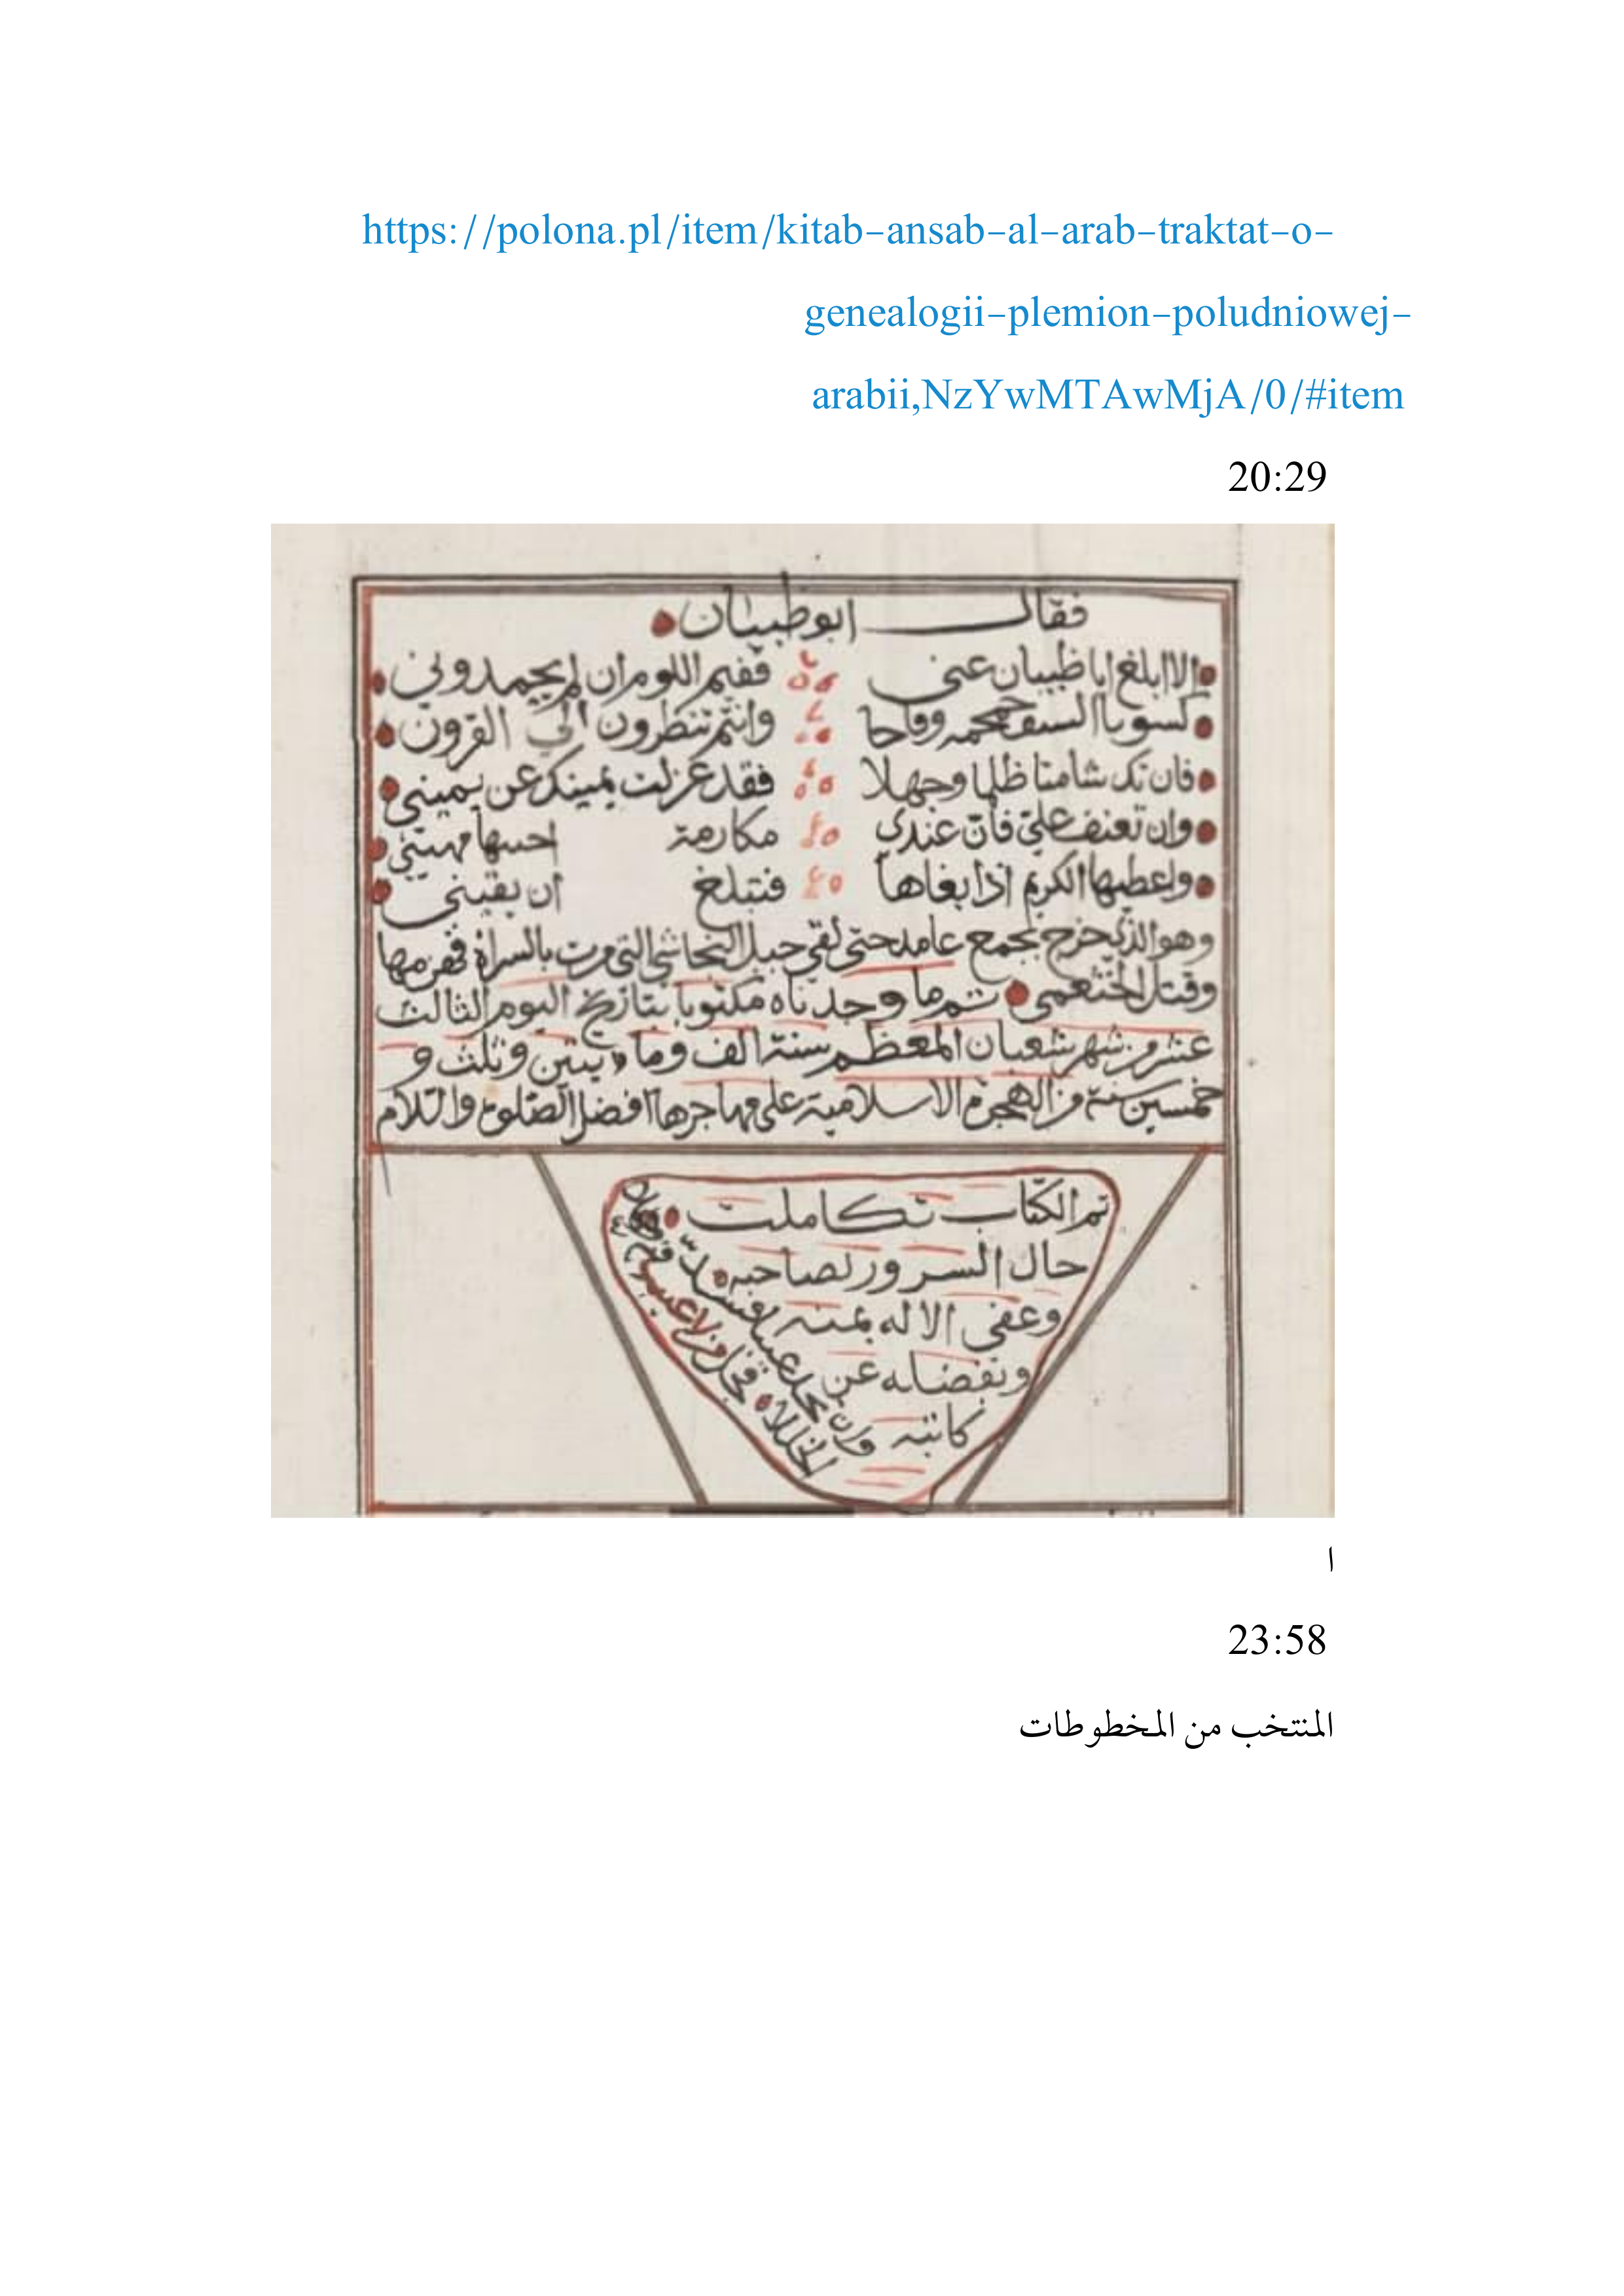 https://polona.pl/item/kitab-ansab-al-arab-traktat-o-
genealogii-plemion-poludniowej-
arabii,NzYwMTAwMjA/0/#item
20:29
فقال ابوظبيان
الا ابلغ ابا ظبيان عني ففيم اللوم ان لم يحمدوني
وانتم تنظرون الي القرون
فان تك شامتا ظلما وجهلا فقد عزلت يمينك عن يميني
وان تعنف علي فان عندي مكارمة
واعطيها الكريم اذا بغاها فتبلغ ان يقيني
وهو الذي خرج بجمع غامد حتى لقي النجاشي التي مرت بالسراة
وقتل الخثعمي تم ما وجدناه مكتوبا بتاريخ اليوم الثالث
عشر من شهر شعبان المعظم سنة الف وماءيتين وثلث و
خمسين سنة من الهجرة الاسلامية على مهاجرها افضل الصلوة والسلام
تم الكتاب تكاملت
حال السرور لصاحبه
وعفى الاله بمنه
وبفضله عن
كاتبه
وان تجد عيبا فسد الخللا
ا
23:58
المنتخب من المخطوطات